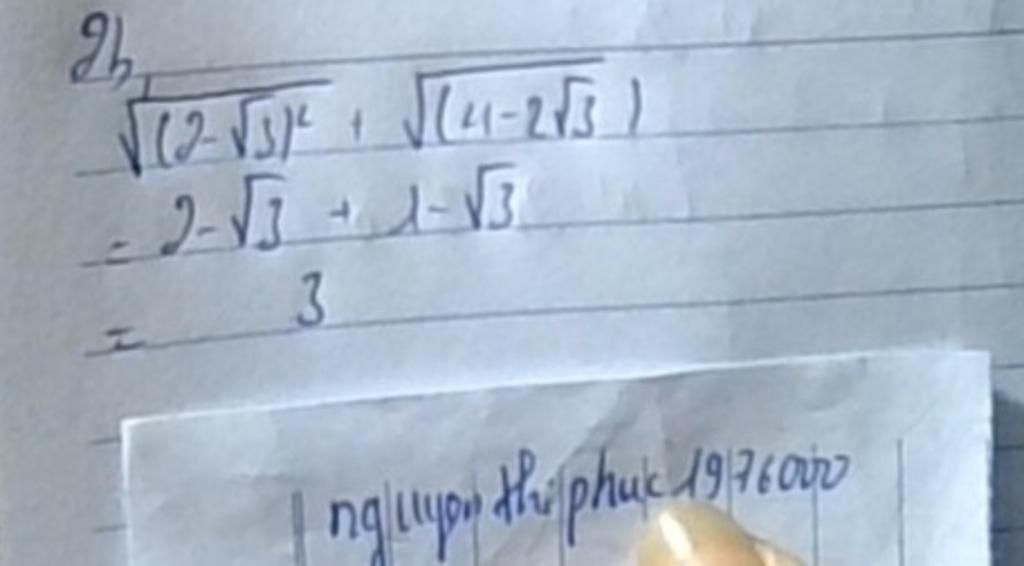 2b,
√(2-√3)² + √(4-2√3)
= 2-√3 + 1-√3
= 3
nguyen thi phuc 1976000